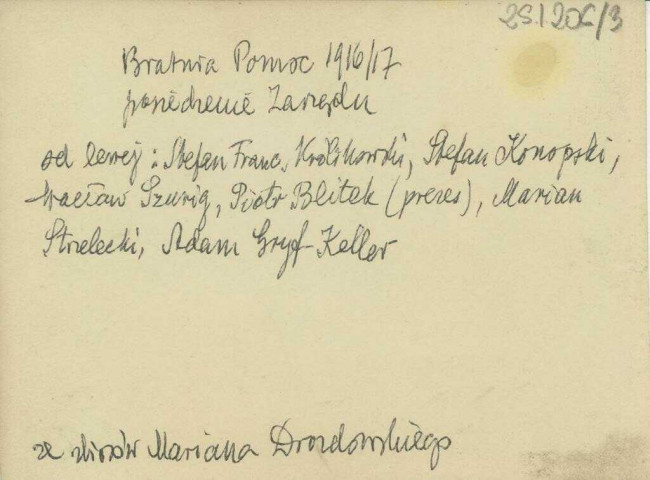 25.1206/3
Bratnia Pomoc 1916/17
posiedzenie Zarządu
od lewej: Stefan Franc. Królikowski, Stefan Konopski,
Wacław Szurig, Piotr Blitek (prezes), Marian
Strzelecki, Adam Gryf-Keller
ze zbiorów Mariana Drozdowskiego